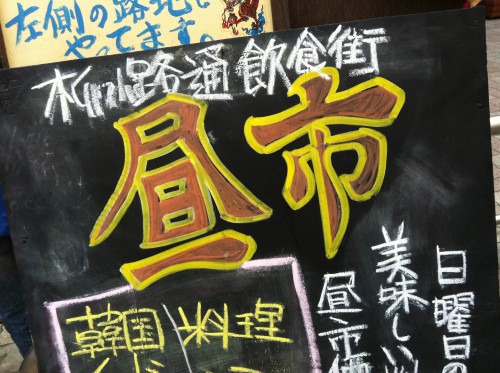 左側の路地で
やってます。
柳小路通飲食街
昼市
日曜日の
美味しい
昼市価
韓国料理